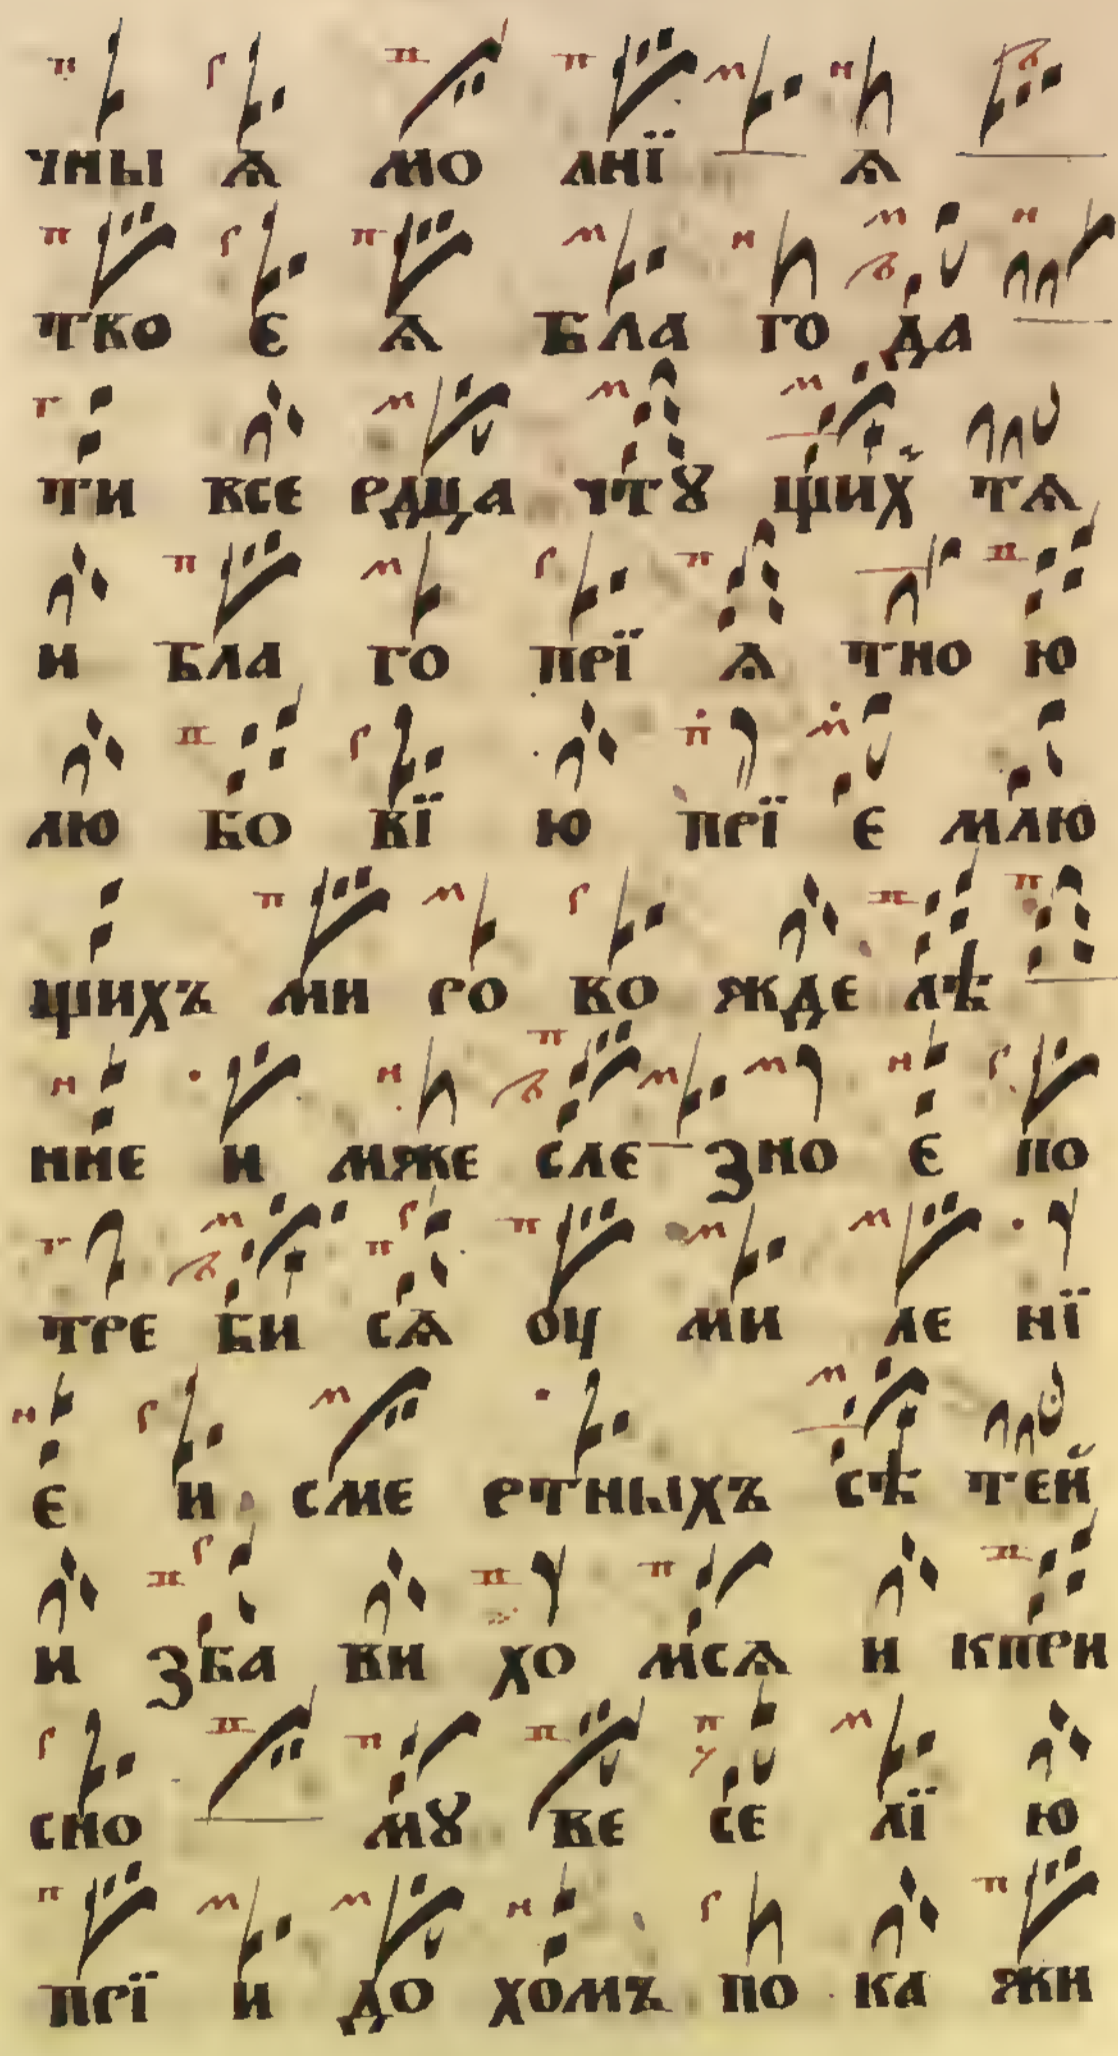 чны ѧ мо лнї ѧ
тко є ѧ бла го да
ти все рдца чтꙋ щих̾ тѧ
и бла го прї ѧ тно ю
лю бо вї ю прї є млю
щихъ ми ро во жде лѣ
нне и мже сле зно є по
тре би сѧ оу ми ле нї
є и сме ртныхъ сѣ тей
и зба ви хо мсѧ и кпри
сно мꙋ ве се лї ю
прї и до хомъ по ка жи